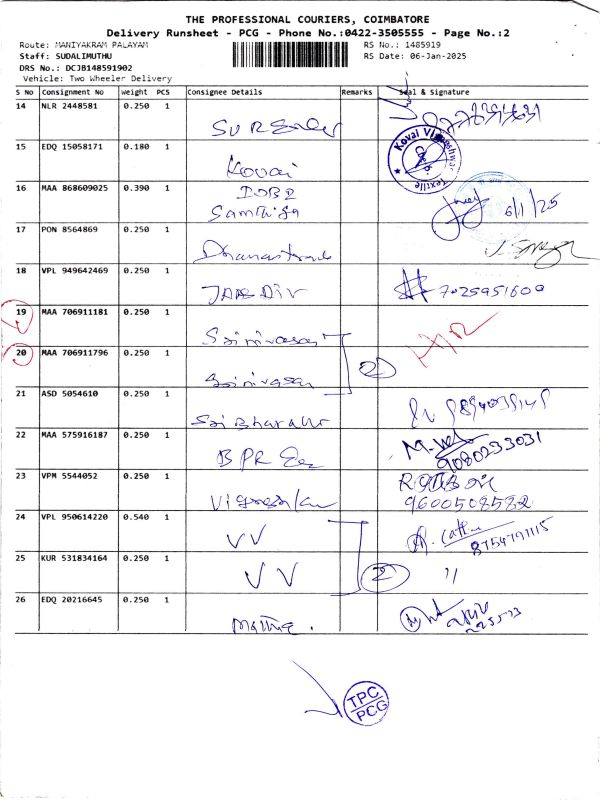 THE PROFESSIONAL COURIERS, COIMBATORE
Delivery Runsheet - PCG - Phone No.:0422-3505555 - Page No.:2
Route: MANIYAKRAM PALAYAM
RS No.: 1485919
Staff: SUDALIMUTHU
RS Date: 06-Jan-2025
DRS No.: DCJB148591902
Vehicle: Two Wheeler Delivery
S No Consignment No Weight PCS Consignee Details Remarks Seal & Signature
14 NLR 2448581 0.250 1
15 EDQ 15058171 0.180 1 Kovai
Kovai Vigneshwar Textille
16 MAA 868609025 0.390 1
6/1/25
17 PON 8564869 0.250 1
18 VPL 949642469 0.250 1
7025951600
19 MAA 706911181 0.250 1 Srinivasan
20 MAA 706911796 0.250 1 Srinivasan 2
21 ASD 5054610 0.250 1
22 MAA 575916187 0.250 1 BPR
9080233031
23 VPM 5544052 0.250 1
9600508582
24 VPL 950614220 0.540 1 VV
8754791115
25 KUR 531834164 0.250 1 VV 2 "
26 EDQ 20216645 0.250 1
TPC
PCG